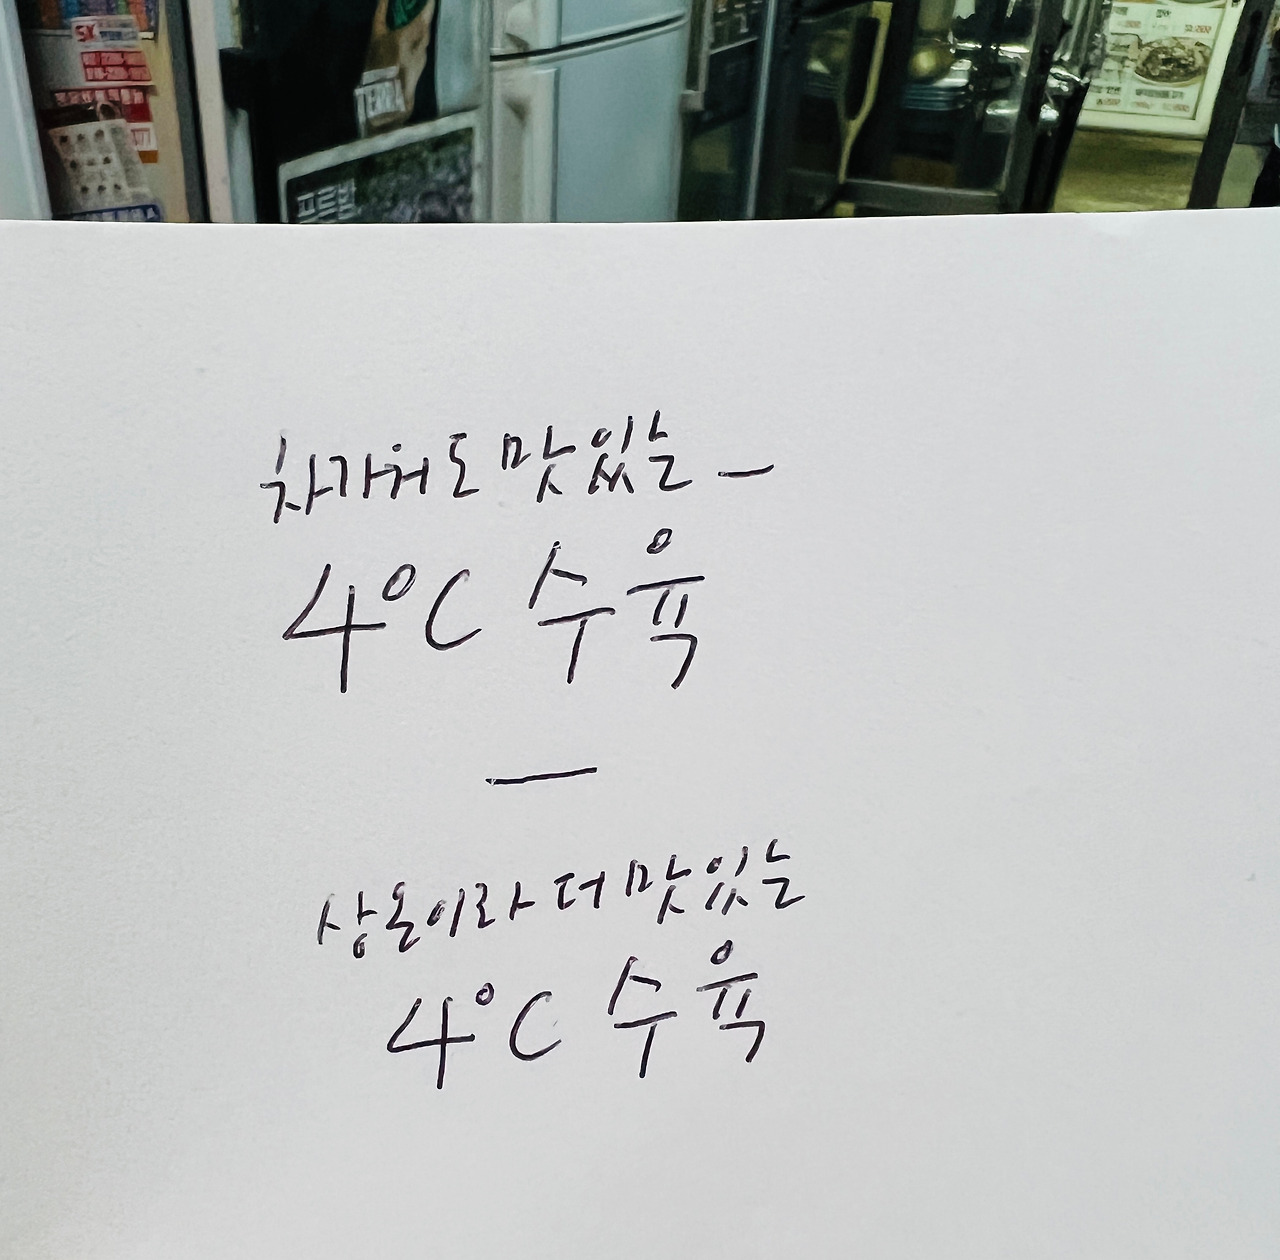 SK
TERRA
차가워도 맛있는 —
4°C 수육
—
상온이라 더 맛있는
4°C 수육